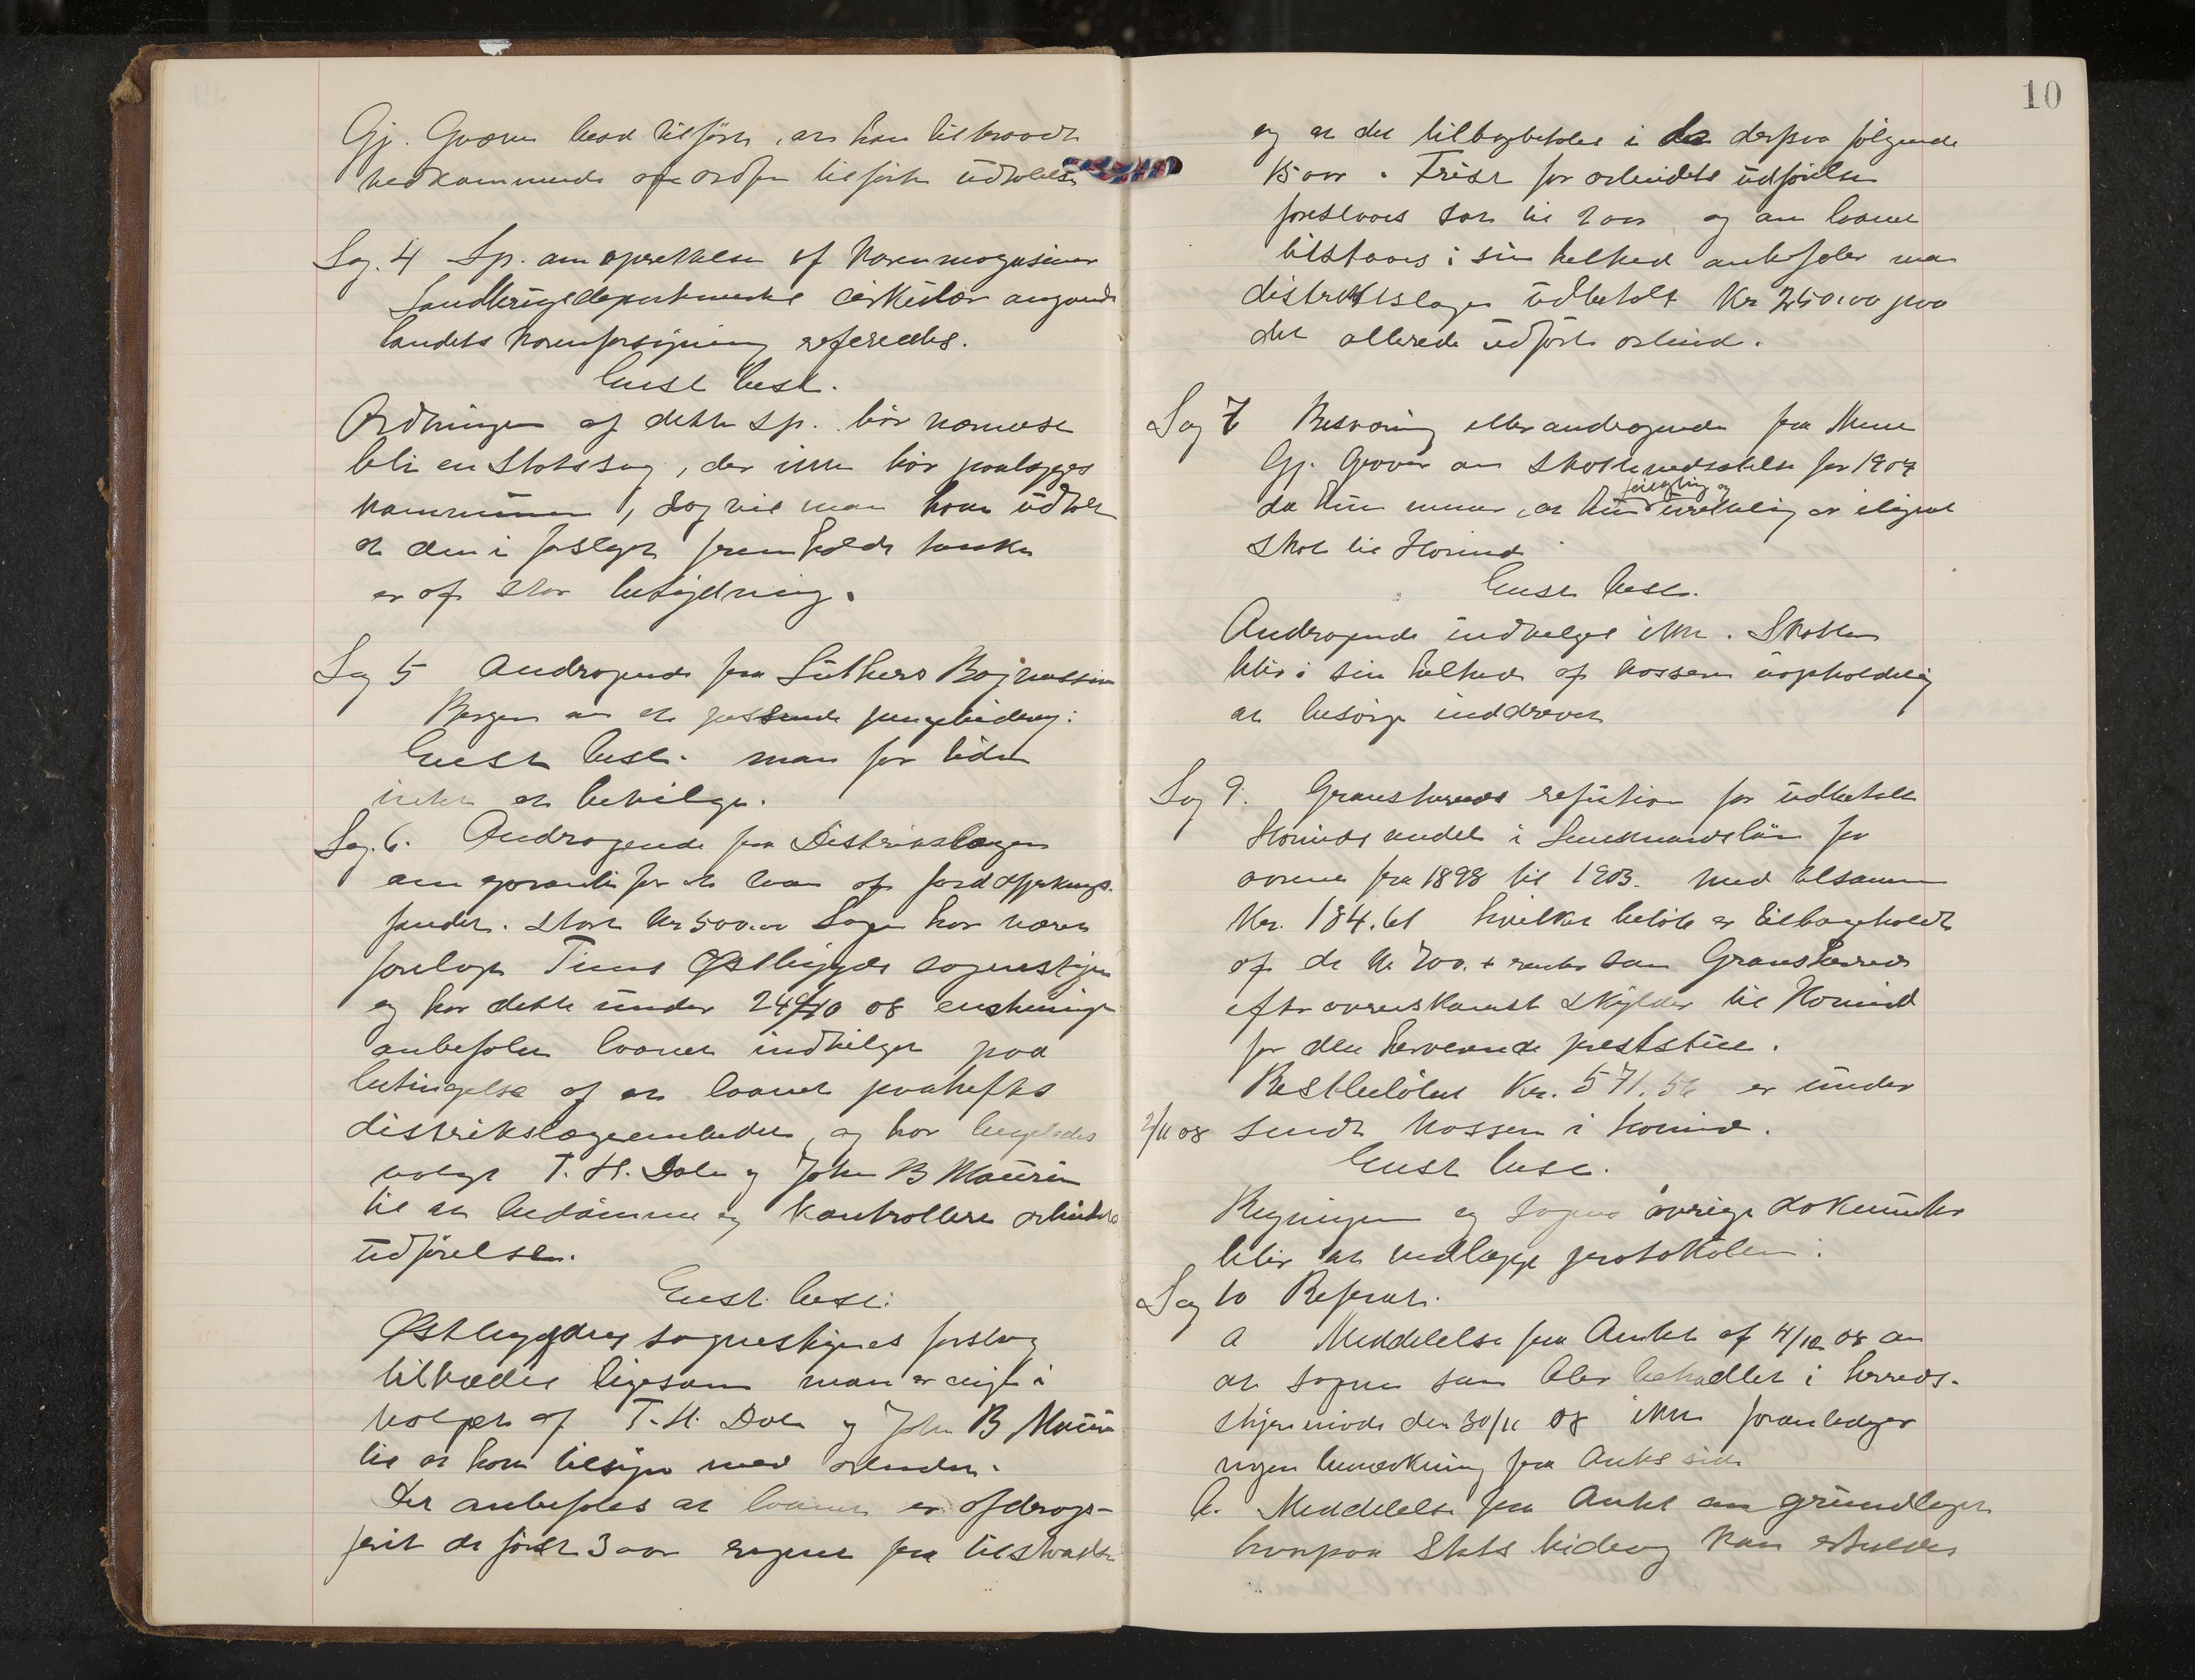 Gj. Gvaren lood tilføre, at han tilbraadte
vedkommende om ordfør tilførte udtalelse
Sag. 4 Sp. om oprettelse af Kornmagasiner
Landbrugsdepartmentes cirkulær angaaende
landets kornforsyning refereredes.
Enst besl.
Ordningen af dette sp. bør nærmest
bli en Statssag, der ikke bør paalægges
kommunen, dog vil man have udtalt
at den i forslaget fremholdte tanke
er af stor betydning.
Sag 5 Andragende fra Luthers Bogmission
Bergen om et passende pengebidrag:
Enst besl. man for tiden
intet at bevilge.
Sag. 6. Andragende fra Distrikslægen
om garanti for et laan af jorddyrknings-
fondet. stort Kr 500.00 Sagen har været
forelagt Tinns Østbygds sognestyre
og har dette under 24/10 08 enstemmigt
anbefalet laanet indvilget paa
betingelse af at laanet paahefts
distrikslægeembedet, og har ligeledes
valgt T. H. Dale og John B Mauren
til at bedømme og kontrollere arbeidets
udførelse.
Enst. besl:
Østbygdens sognestyres forslag
tiltrædes ligesom man er enig i
valget af T. H. Dale og John B Mauren
til at have tilsyn med arbeidet.
Det anbefales at laanet er afdrags-
frit de første 3 aar regnet fra tilstaaelsen
10
og at det tilbagebetales i de derpaa følgende
15 aar. Frist for arbeidets udførelse
foreslaaes sat til 2 aar og om laanet
tilstaaes i sin helhed anbefaler man
distriktslægen udbetalt Kr 250.00 paa
det allerede udførte arbeid.
Sag 7 Besværing eller andragende fra
Gj. om skattenedsættelse for 1907
feilagtig og
da hun mener, at hun urettelig er ilignet
skat til Hovind
Enst besl.
Andragende indvilges ikke. Skatten
blir i sin helhed af kassern uopholdelig
at besørge inddrevet
Sag 9. Gransherreds refution for udbetalt
Hovinds andel i Lensmandsløn for
aarene fra 1898 til 1903. med tilsammen
Kr. 184.61 hvilket beløb er tilbageholdt
af de Kr 700. + renter som Gransherred
efter overenskomst skylder til Hovind
for den herværende prestestue.
Restbeløbet Kr. 571.56 er under
2/11 08 sendt kassern i Hovind.
Enst besl.
Regningen og sagens øvrige dokumenter
blir at vedlægge protokolen.
Sag 10 Referat.
a Meddelelse fra Amtet af 4/12 08 om
at sagene som blev behandlet i herreds-
styremøde den 30/11 08 ikke foranlediger
nogen bemærkning fra Amts side
b. Meddelelse fra Amtet om grundlaget
hvorpaa Stats bidrag kan erholdes